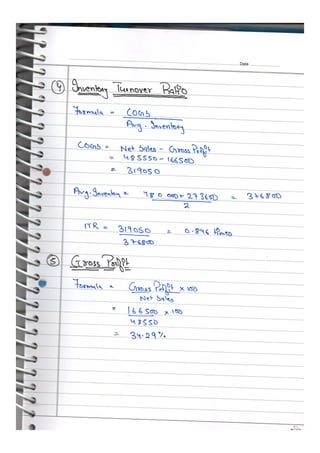 Date
④ Inventory Turnover Ratio
Formula = COGS
Avg. Inventory
COGS = Net Sales - Gross Profit
= 485550 - 166500
= 319050
Avg. Inventory = 480000 + 273600 = 376800
2
ITR = 319050 = 0.846 times
376800
⑤ Gross Profit
Formula = Gross Profit x 100
Net Sales
= 166500 x 100
48550
= 34.29%